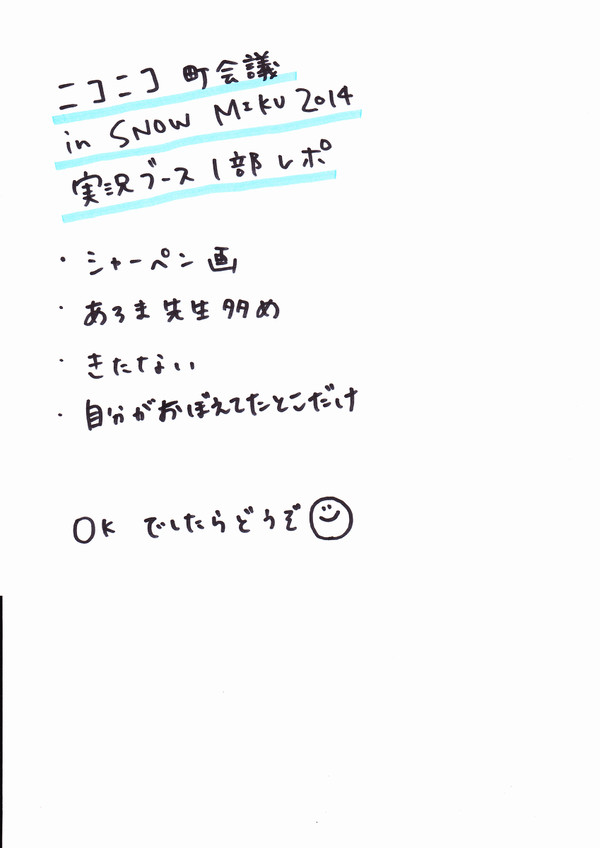 ニコニコ 町会議
in SNOW MIKU 2014
実況ブース 1部レポ
・シャーペン画
・あろま先生多め
・きたない
・自分がおぼえてたとこだけ
OK でしたらどうぞ